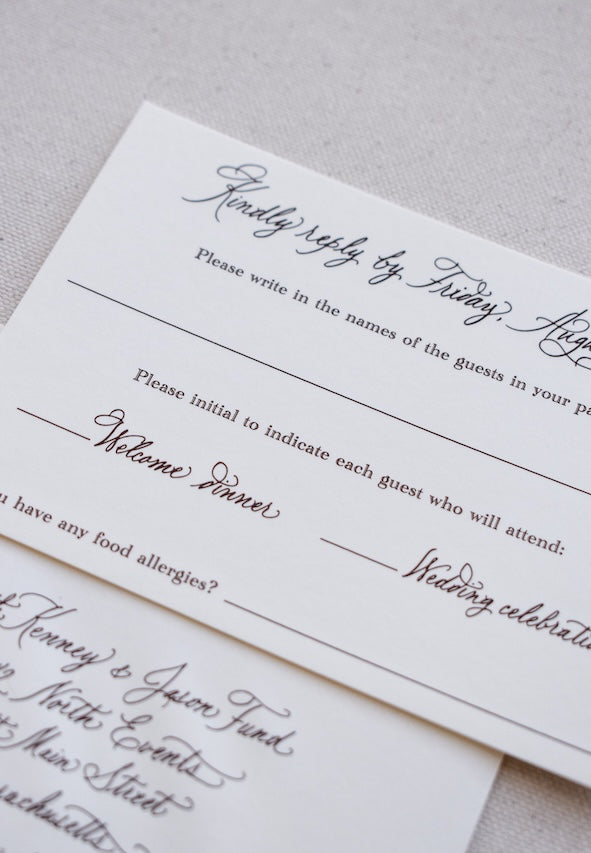 Kindly reply by Friday, Augu
Please write in the names of the guests in your pa
Please initial to indicate each guest who will attend:
Welcome dinner
Wedding celebratio
u have any food allergies?
Kenney & Jason Fund
North Events
Main Street
sachusetts